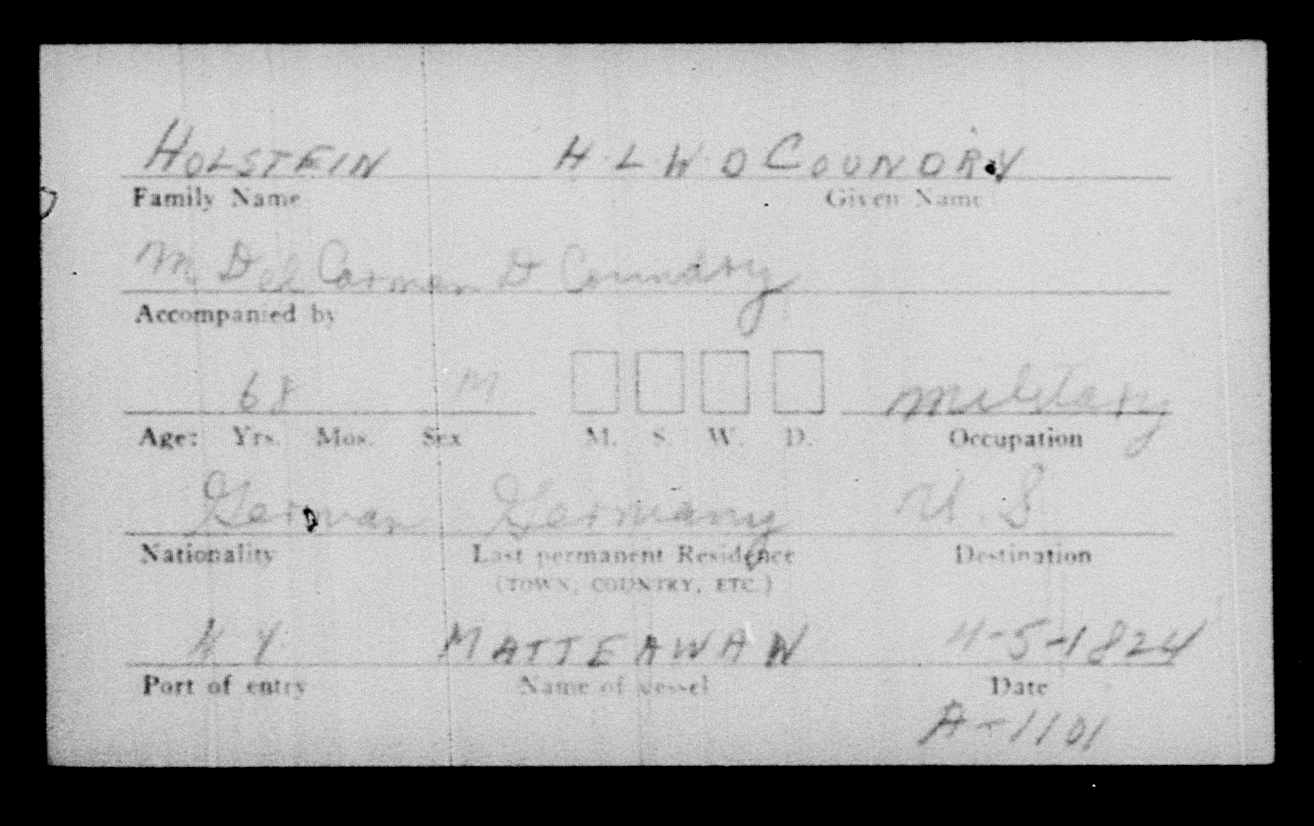 HOLSTEIN H L W D COUNDRY
Family Name Given Name
M Del Carmen D Coundry
Accompanied by
68 M military
Age: Yrs. Mos. Sex M. S. W. D. Occupation
German Germany U.S.
Nationality Last permanent Residence Destination
(TOWN, COUNTRY, ETC.)
N Y MATTEAWAN 4-5-1824
Port of entry Name of vessel Date
A-1101